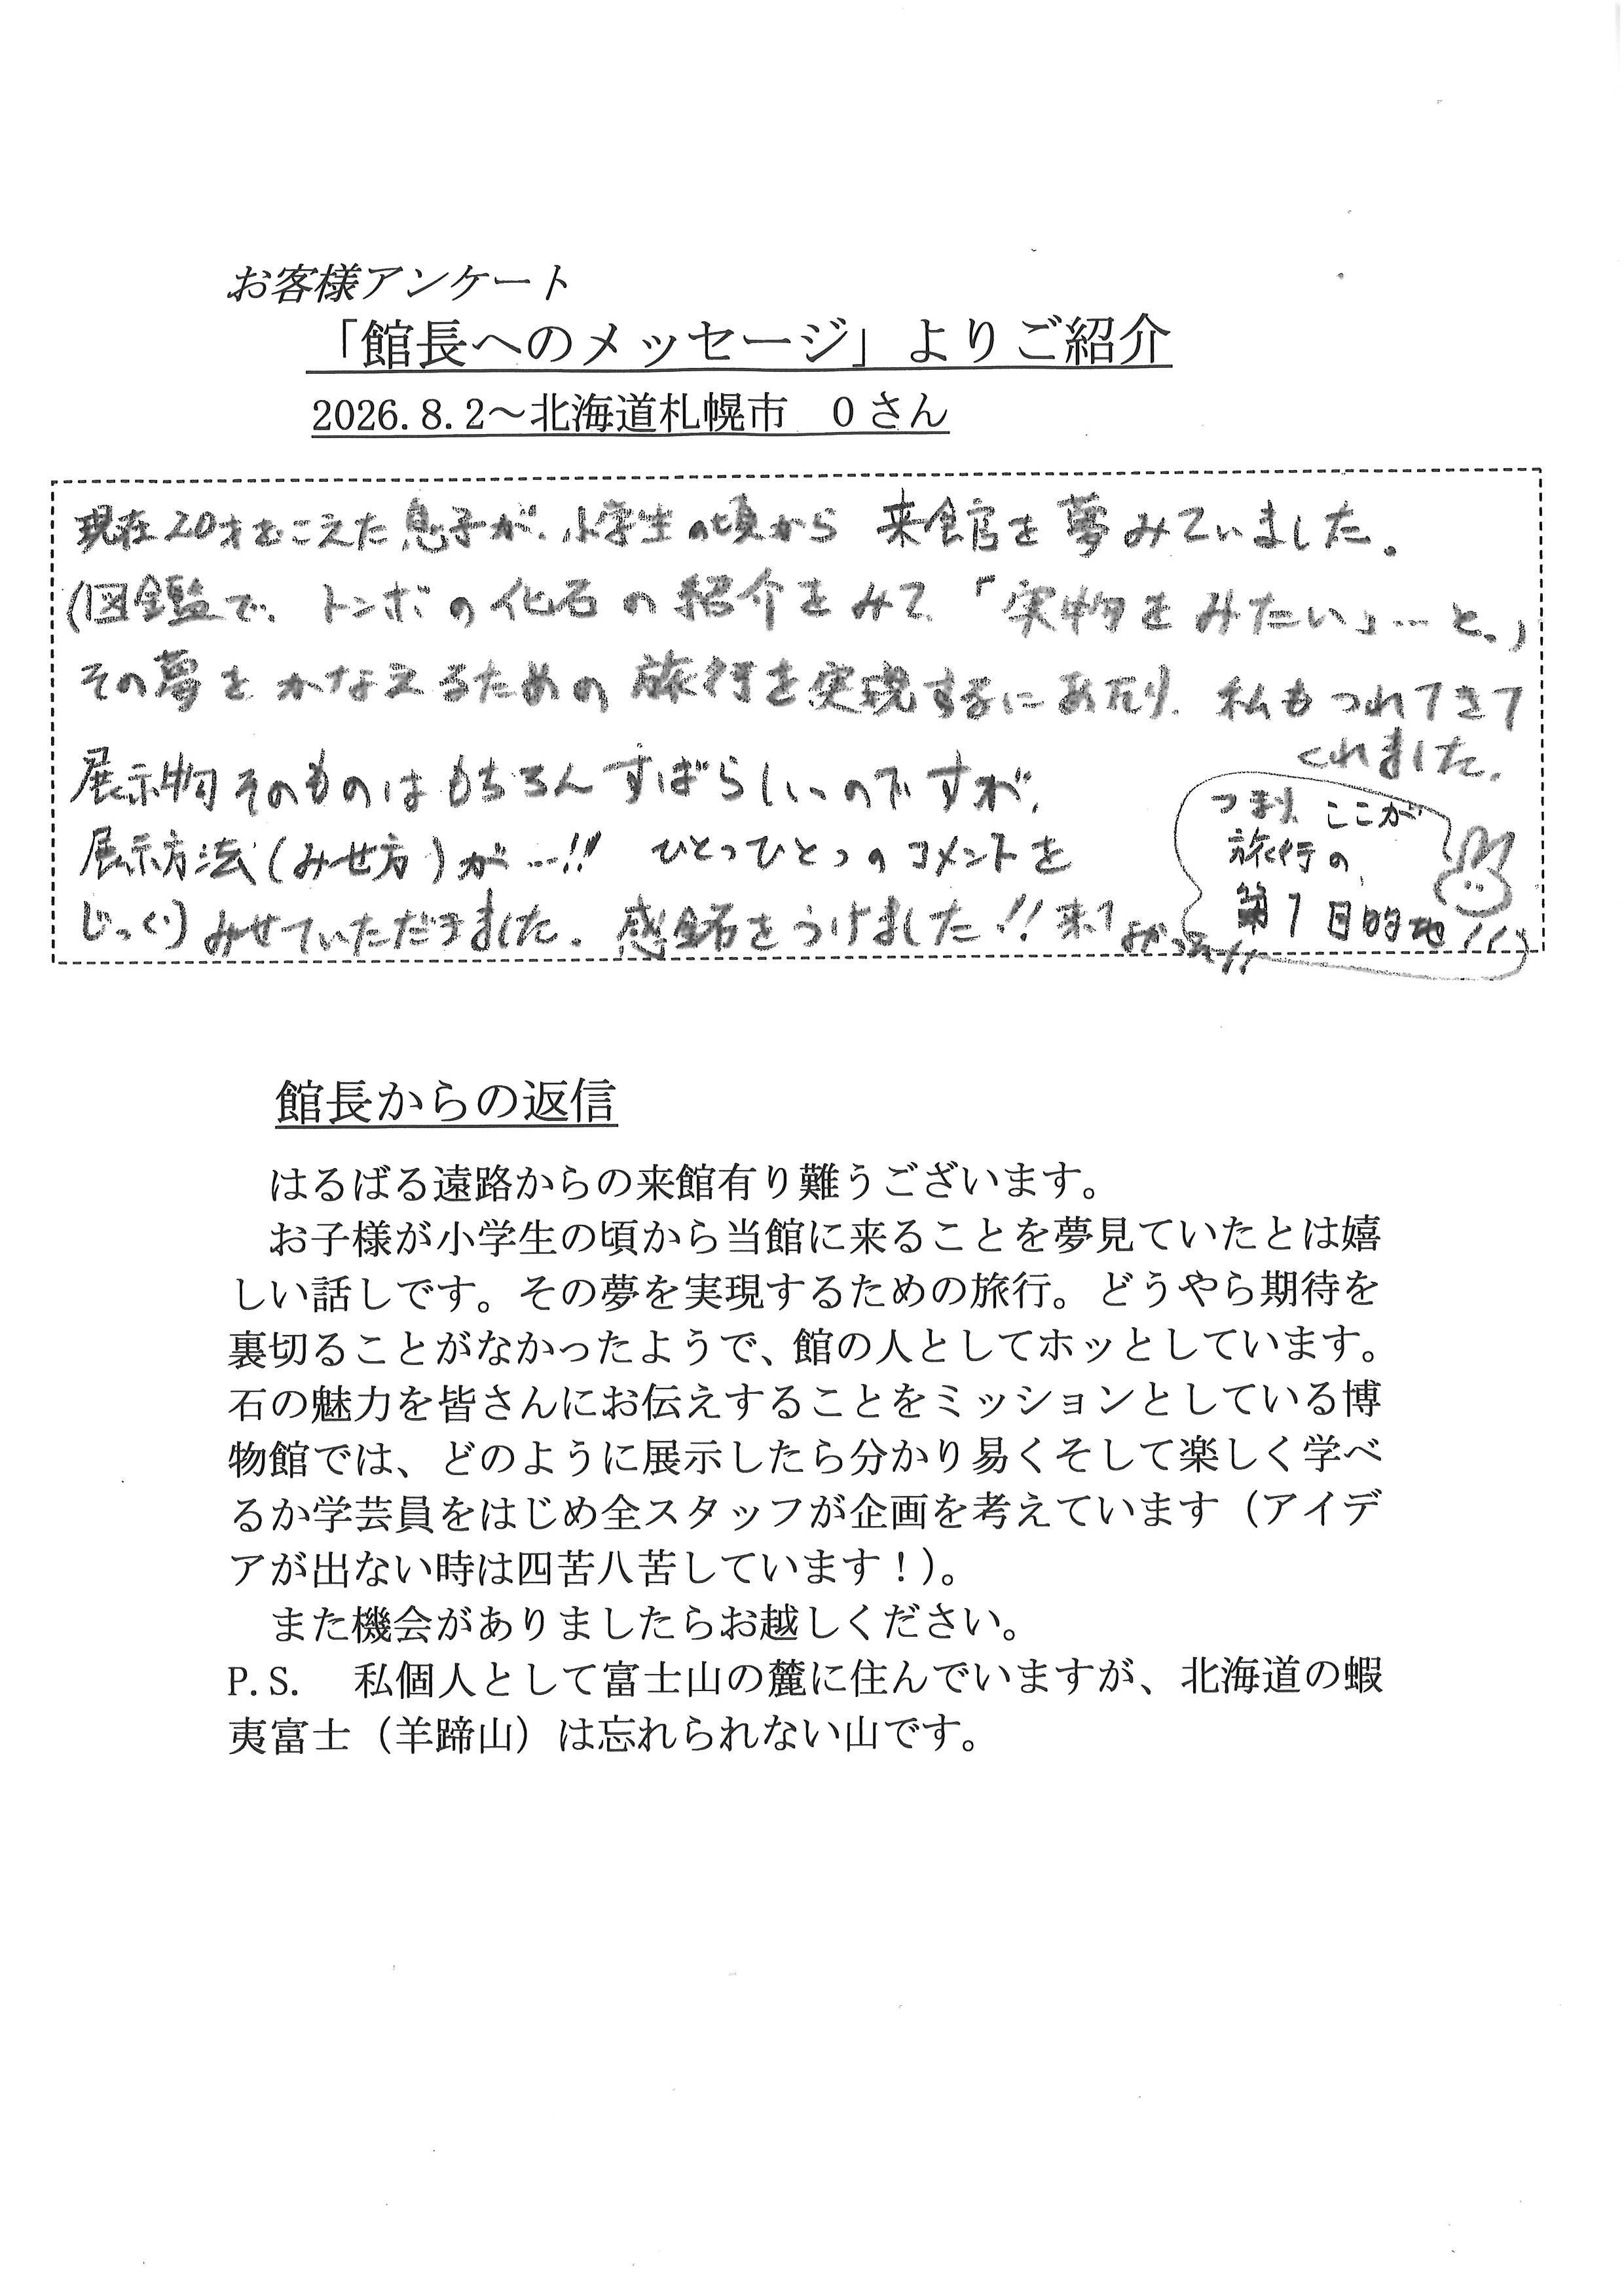 お客様アンケート
「館長へのメッセージ」よりご紹介
2026.8.2～北海道札幌市　Oさん
現在20才をこえた息子が、小学生の頃から 来館を夢みていました。
(図鑑で、トンボの化石の紹介をみて「実物をみたい」…と。)
その夢をかなえるための旅行を実現するにあたり、私もつれてきて
くれました。
展示物そのものはもちろんすばらしいのですが、
展示方法(みせ方)が…!! ひとつひとつのコメントを
じっくりみせていただきました。感銘をうけました!!来てよかった!!
つまり、ここが
旅行の
第1目的地!!
館長からの返信
はるばる遠路からの来館有り難うございます。
お子様が小学生の頃から当館に来ることを夢見ていたとは嬉
しい話しです。その夢を実現するための旅行。どうやら期待を
裏切ることがなかったようで、館の人としてホッとしています。
石の魅力を皆さんにお伝えすることをミッションとしている博
物館では、どのように展示したら分かり易くそして楽しく学べ
るか学芸員をはじめ全スタッフが企画を考えています（アイデ
アが出ない時は四苦八苦しています！）。
また機会がありましたらお越しください。
P.S.　私個人として富士山の麓に住んでいますが、北海道の蝦
夷富士（羊蹄山）は忘れられない山です。